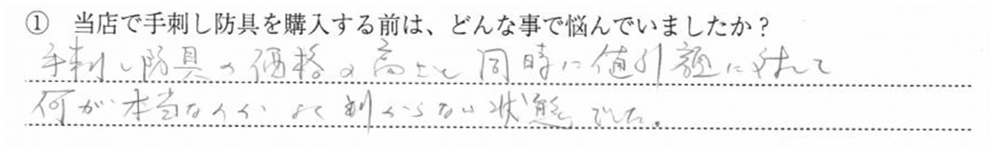 ① 当店で手刺し防具を購入する前は、どんな事で悩んでいましたか？
手刺し防具の価格の高さと同時に値引額に対して
何が本当なのか よく判からない状態でした。